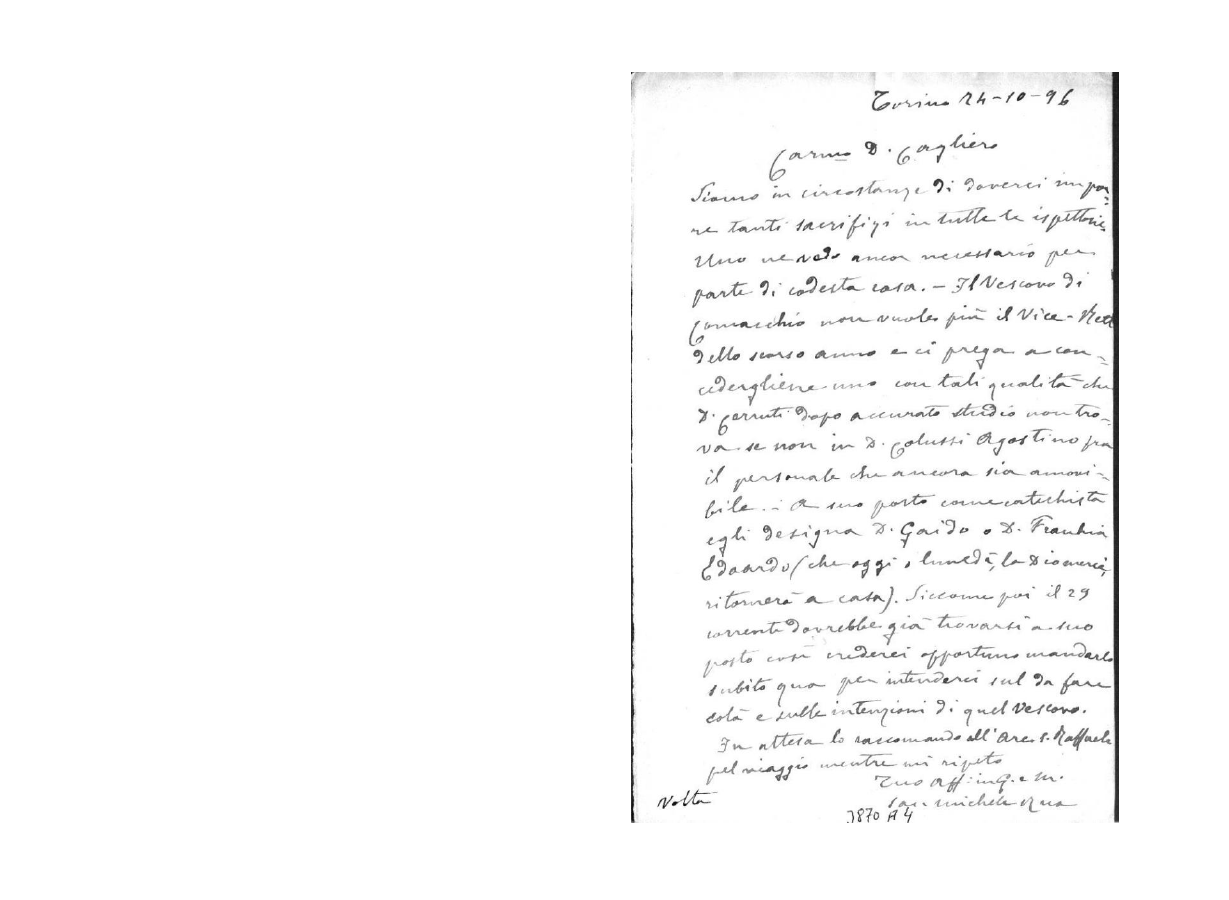 Torino 24-10-96
Carmo D. Cagliero
Siamo in circostanze di doverci impor=
re tanti sacrifizi in tutte le ispettorie
Uno ne vedo ancor necessario per
parte di codesta casa. – Il Vescovo di
Comacchio non vuole più il Vice-Rett
dello scorso anno e ci prega a con=
cedergliene uno con tali qualità che
D. Cerruti dopo accurato studio non tro=
va se non in D. Colussi Agostino fra
il personale che ancora sia amovi=
bile. – A suo posto come catechista
egli designa D. Gaido o D. Franchia
Edoardo (che oggi o lunedì, la Dio mercè,
ritornerà a casa). Siccome poi il 29
corrente dovrebbe già trovarsi a suo
posto così crederei opportuno mandarlo
subito qua per intenderci sul da fare
colà e sulle intenzioni di quel Vescovo.
In attesa lo raccomando all'Arc. S. Raffaele
pel viaggio mentre mi ripeto
Tuo Aff: in G. e M.
Sac. Michele Rua
Volta
3870 A 4